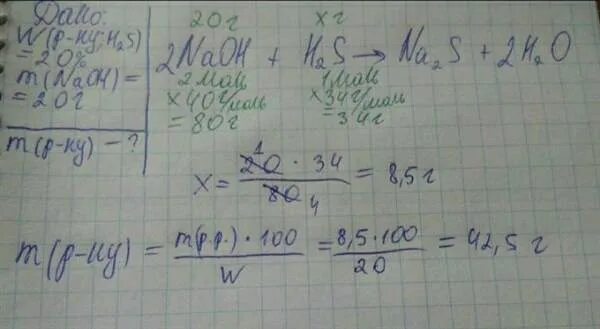 Дано:
W(р-ну; H₂S)
= 20%
m(NaOH) =
= 20г
m(р-ну) - ?
20г xг
2NaOH + H₂S → Na₂S + 2H₂O
2моль 1моль
×40г/моль ×34г/моль
= 80г = 34г
x = 20 · 34 / 80 = 8,5 г
1
4
m(р-ну) = m(р.р.) · 100 / W = 8,5 · 100 / 20 = 42,5 г